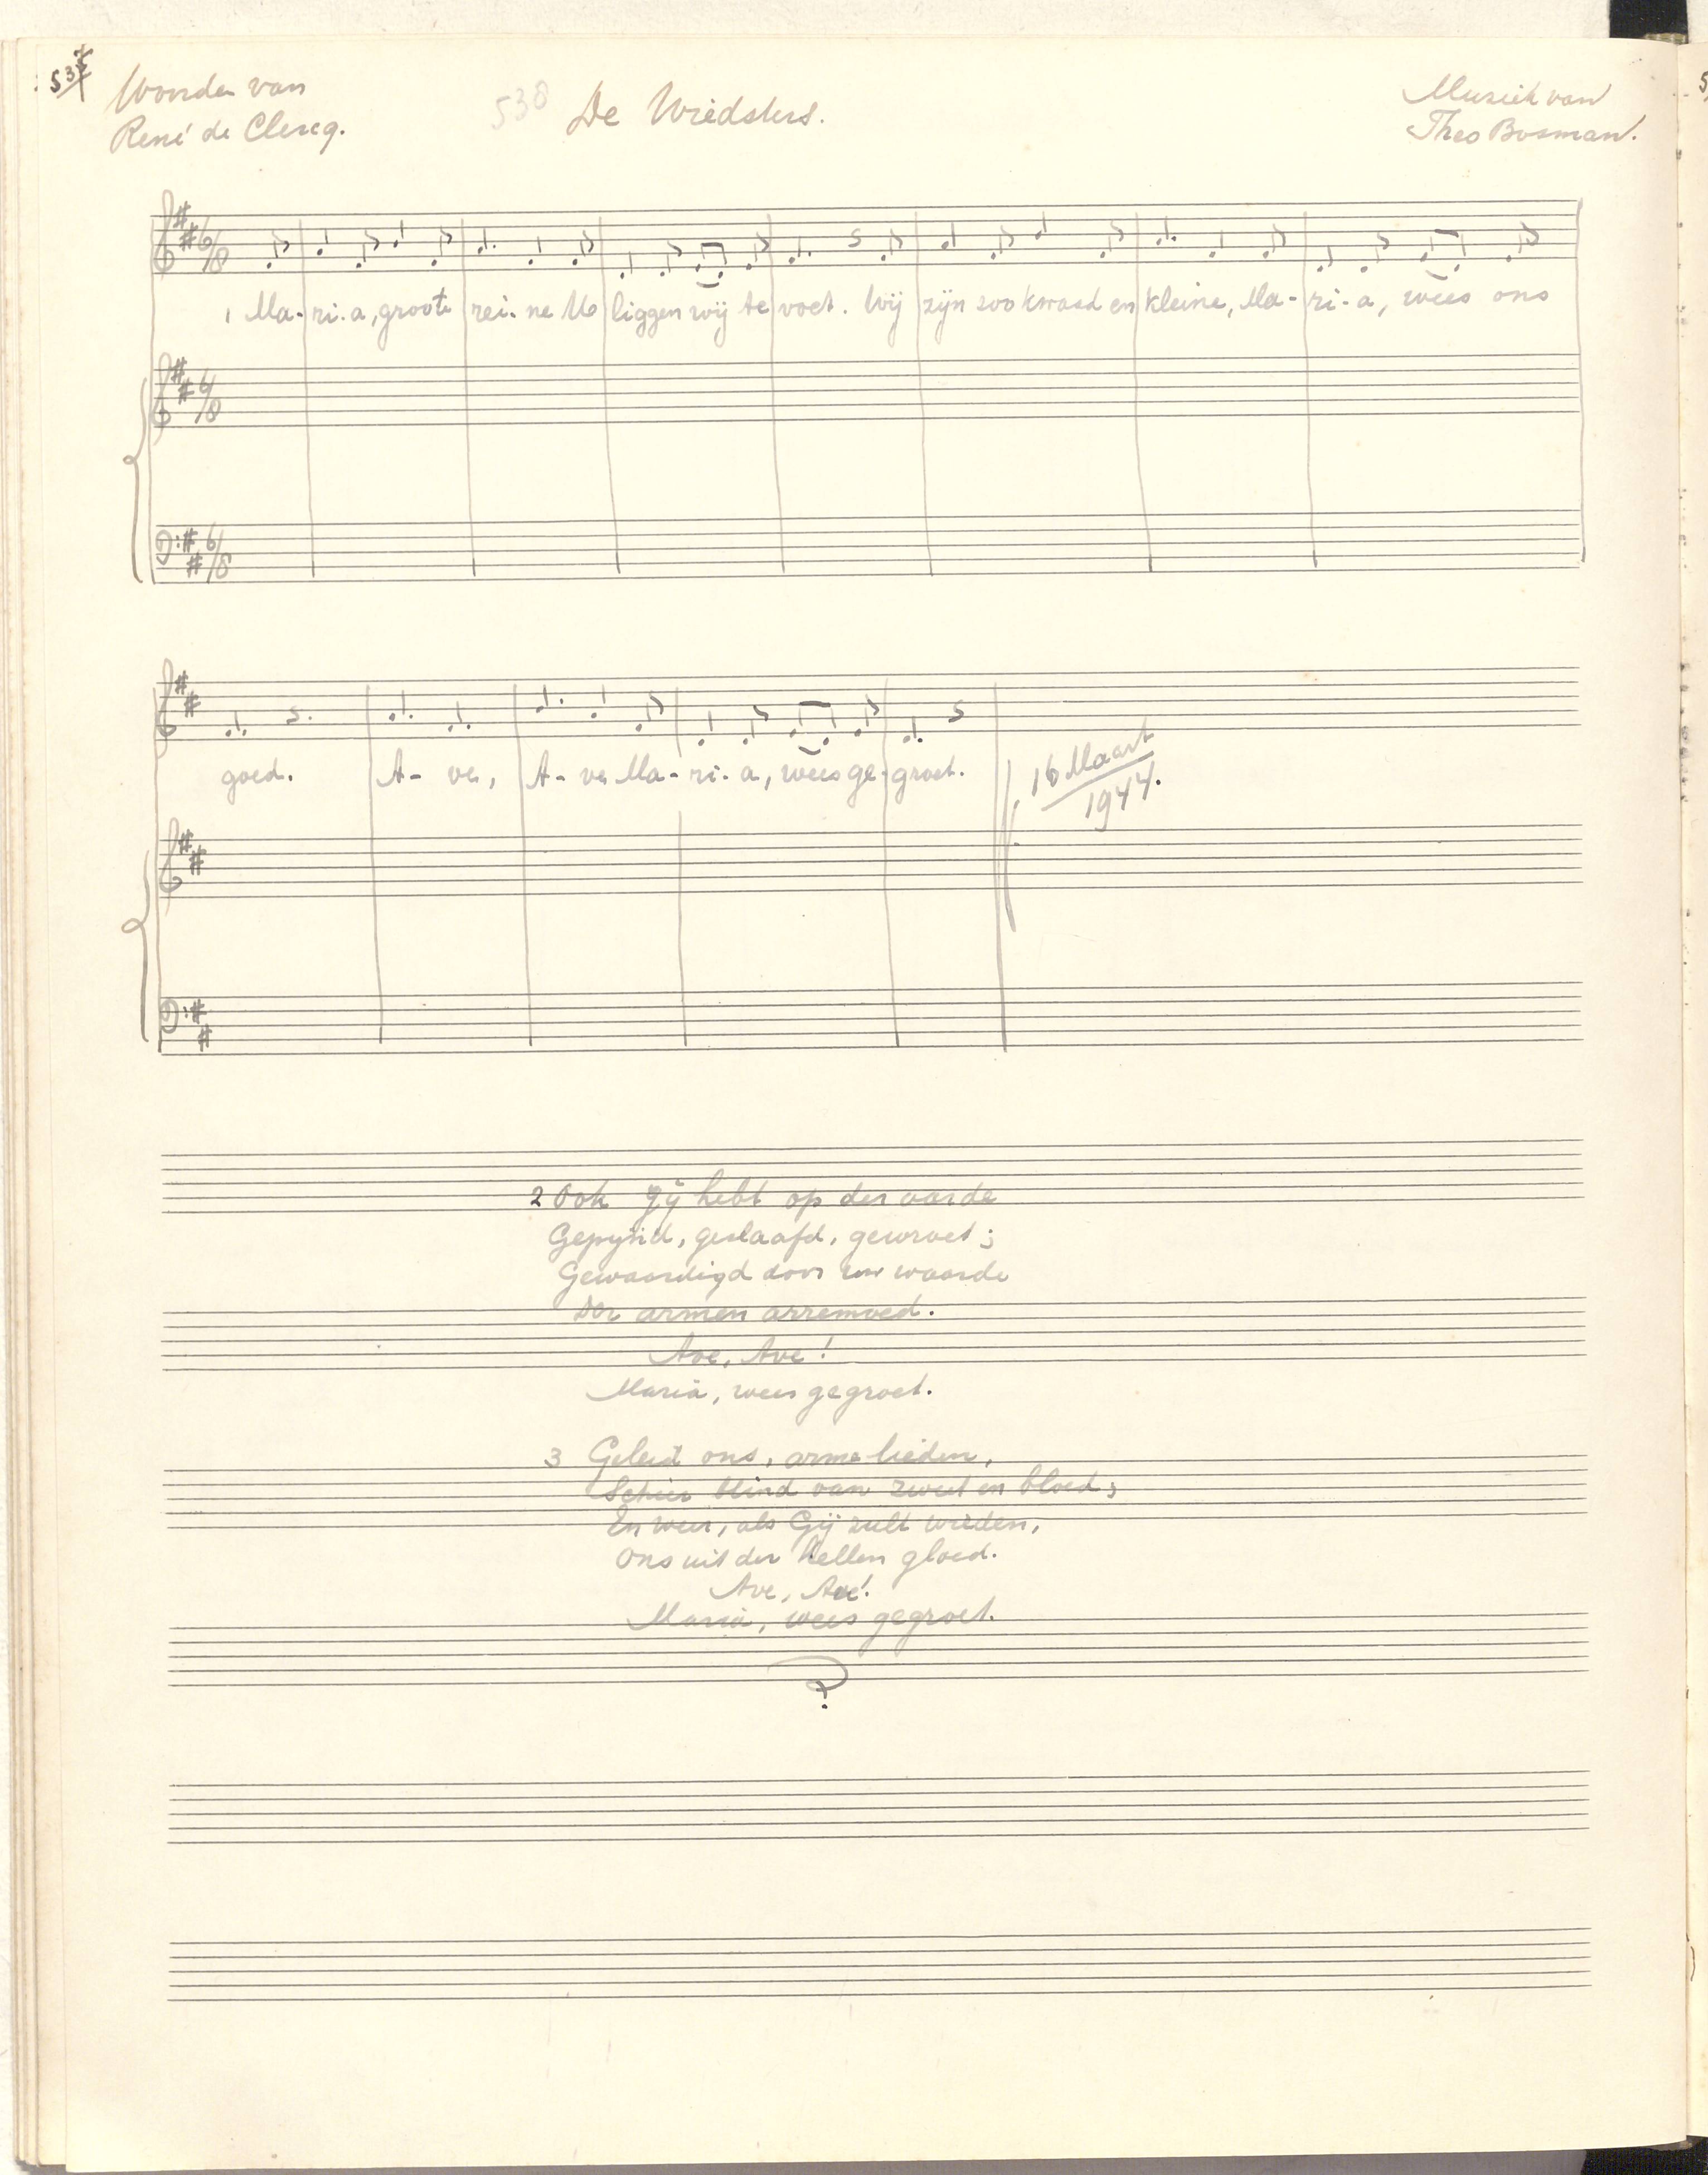 Woorden van
René de Clercq.
538
De Wiedsters.
Muziek van
Theo Bosman.
1 Ma-ri-a, groote rei-ne U liggen wij te voet. Wij zijn zoo kwaad en kleine, Ma-ri-a, wees ons
goed. A-ve, A-ve Ma-ri-a, wees ge-groet.
16 Maart
1944.
2 Ook gij hebt op der aarde
Gepijnd, geslaafd, gewroet;
Gewaardigd door uw waarde
Der armen arremoed.
Ave, Ave!
Maria, wees gegroet.
3 Geleid ons, arme lieden,
Schier blind van zweet en bloed;
En weer, als Gij zult wieden,
Ons uit der hellen gloed.
Ave, Ave!
Maria, wees gegroet.